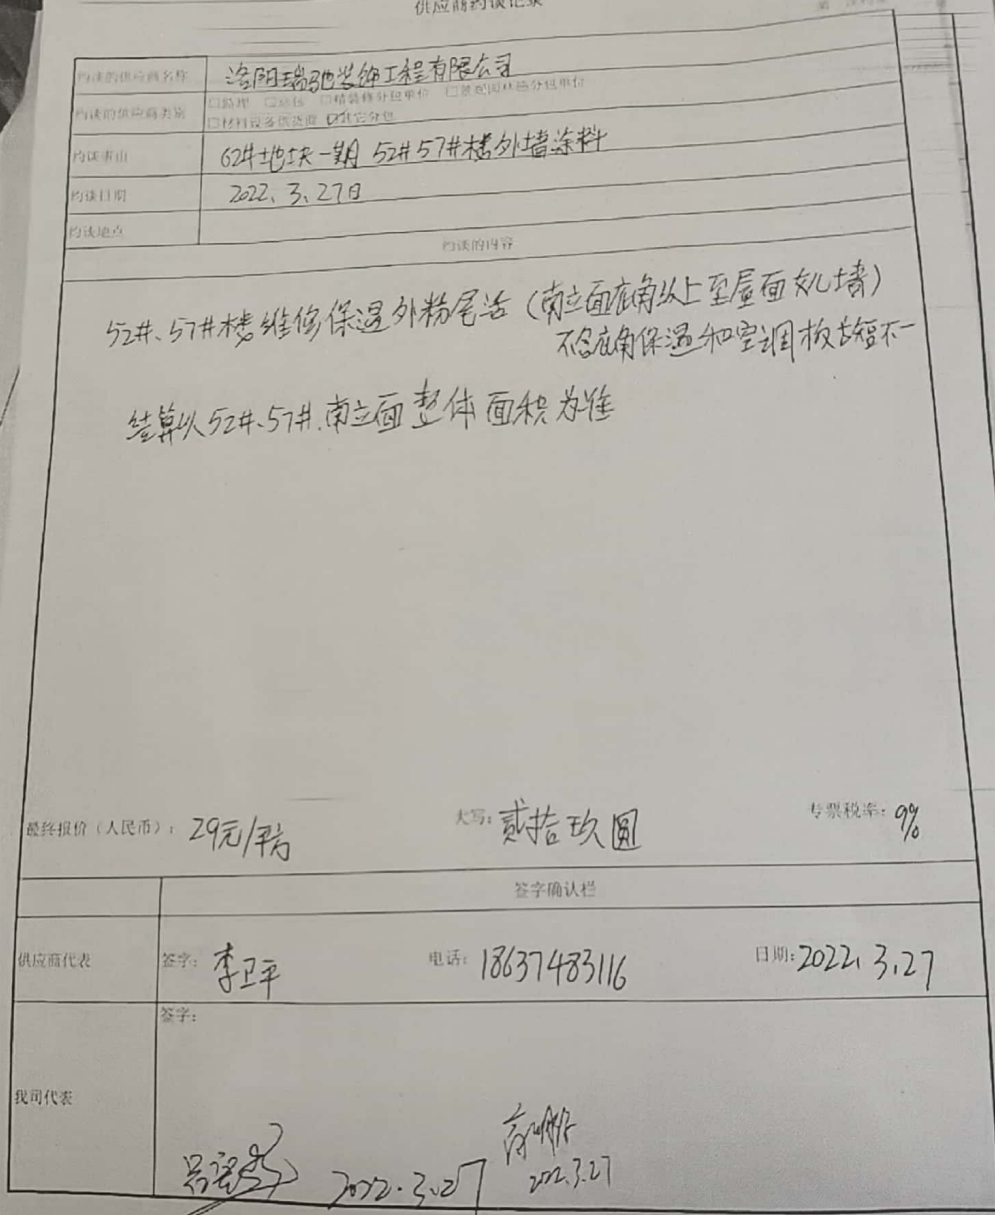 供应商约谈记录
约谈的供应商名称 洛阳瑞驰装饰工程有限公司
约谈的供应商类别 □监理 □总包 □精装修分包单位 □景观园林分包单位
□材料设备供货商 ☑其它分包
约谈事由 62#地块一期 52#57#楼外墙涂料
约谈日期 2022.3.27日
约谈地点
约谈的内容
52#、57#楼维修保温外粉尾活（南立面底角以上至屋面女儿墙）
不含底角保温和空调板长短不一
结算以52#、57#.南立面整体面积为准
最终报价（人民币）：29元/平方 大写：贰拾玖圆 专票税率：9%
签字确认栏
供应商代表 签字：李卫平 电话：18637483116 日期：2022.3.27
签字：
我司代表
2022.3.27 2022.3.27